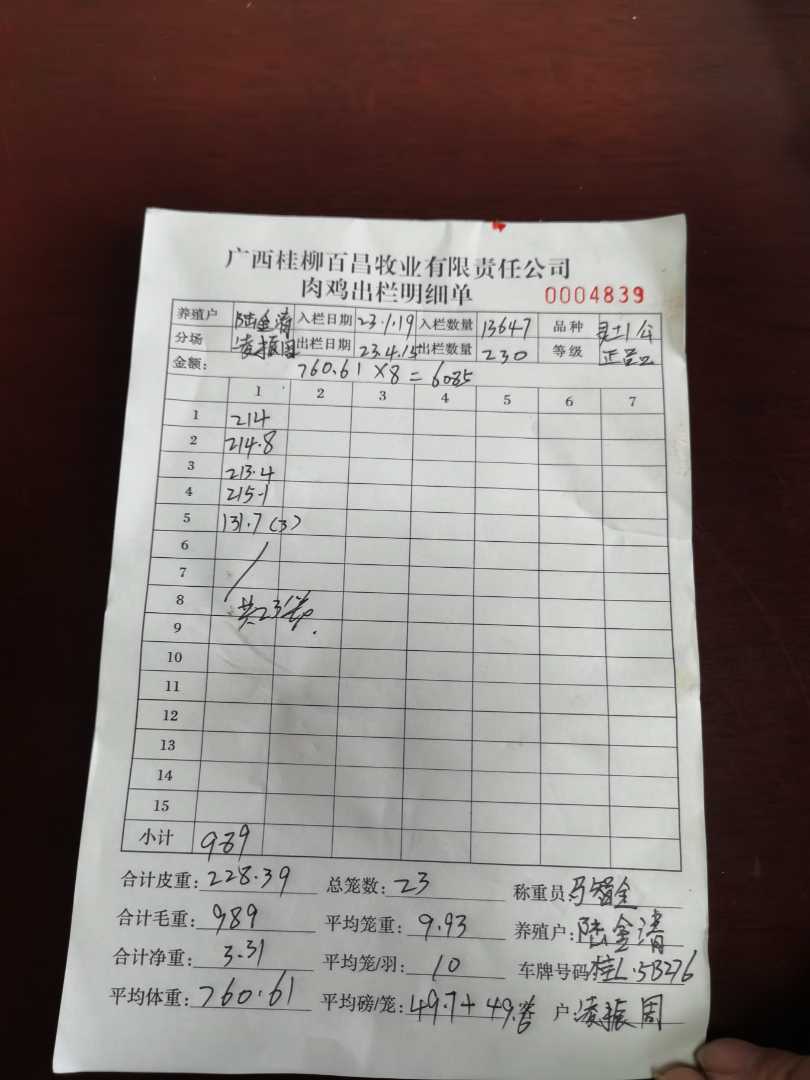 广西桂柳百昌牧业有限责任公司
肉鸡出栏明细单 0004839
养殖户 陆金清 入栏日期 23.1.19 入栏数量 13647 品种
分场 凌振周 出栏日期 23.4.15 出栏数量 230 等级
金额: 760.61 ×8 = 6085
1 2 3 4 5 6 7
1 214
2 214.8
3 213.4
4 215.1
5 131.7 (3)
6
7
8 共23笼.
9
10
11
12
13
14
15
小计 989
合计皮重: 228.39 总笼数: 23 称重员:
合计毛重: 989 平均笼重: 9.93 养殖户: 陆金清
合计净重: 3.31 平均笼/羽: 10 车牌号码: 桂L.5B276
平均体重: 760.61 平均磅/笼: 49.7+49. 户: 凌振周